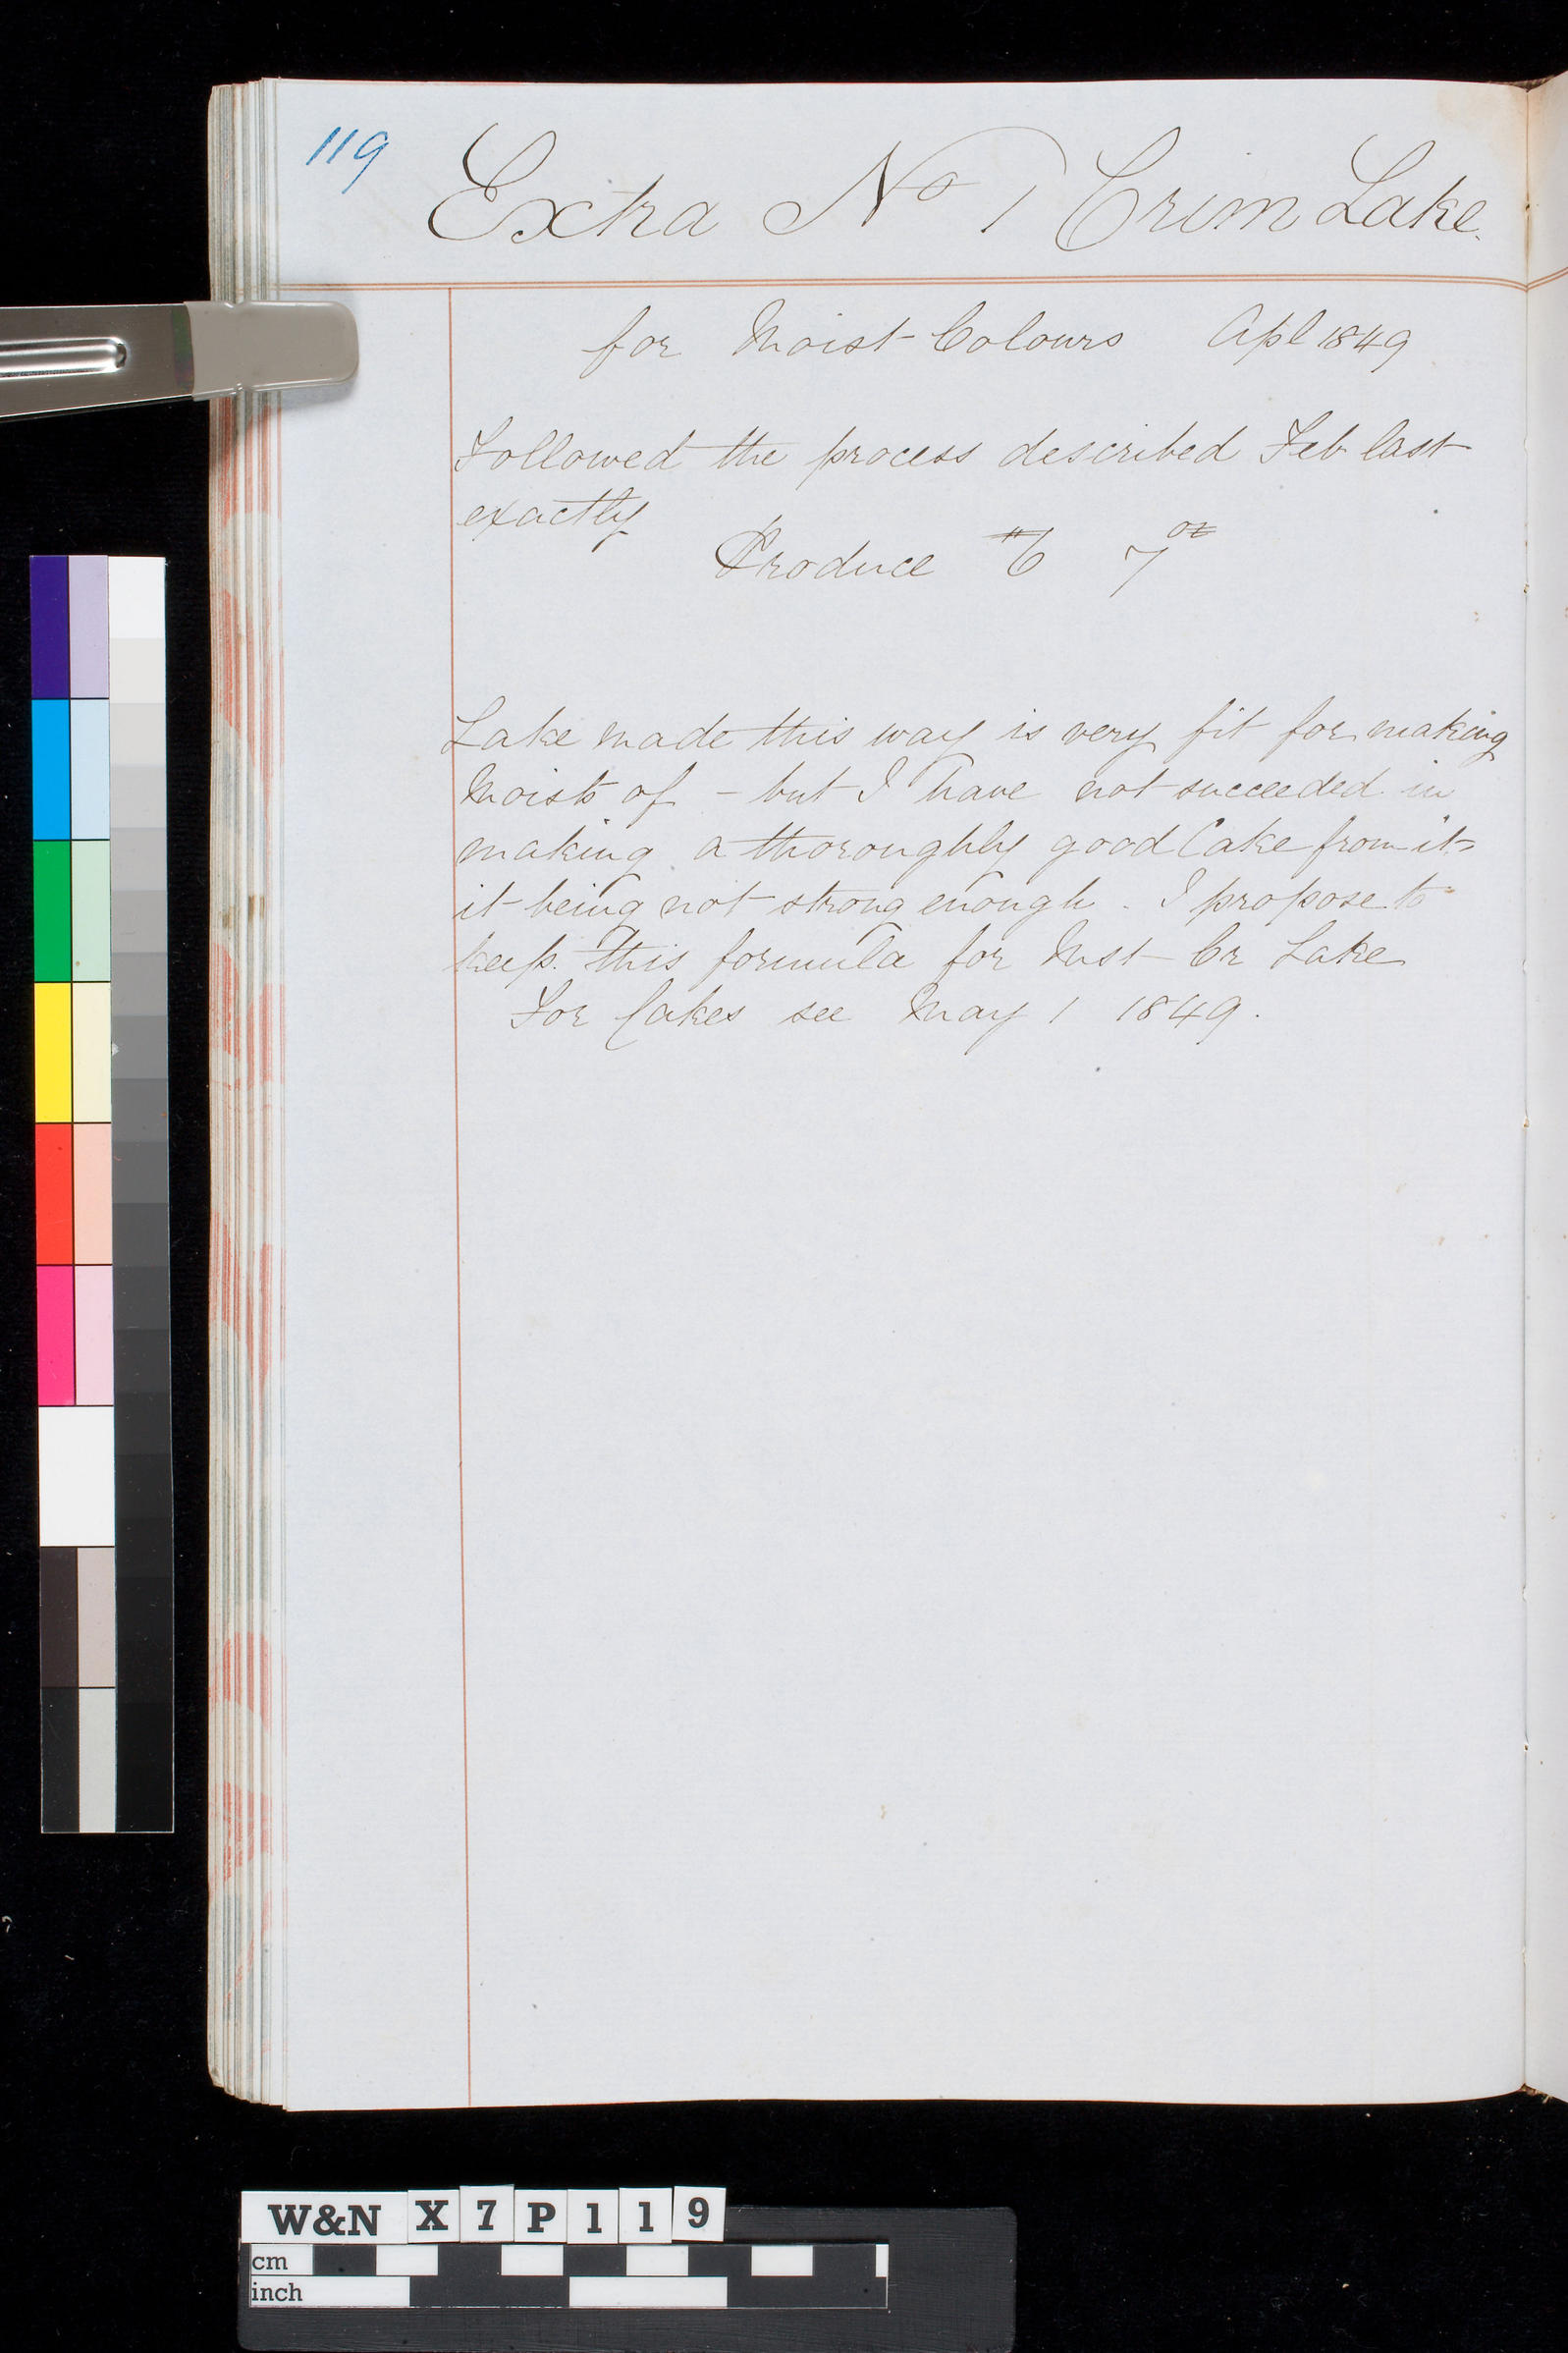 119
Extra No 1 Crim Lake.
for Moist Colours Apl 1849
Followed the process described Feb last
exactly
Produce 7 oz
Lake made this way is very fit for making
Moists of - but I have not succeeded in
making a thoroughly good Cake from it -
it being not strong enough. I propose to
keep this formula for Mst Cr Lake
For Cakes see May 1 1849.
W&N X7P119
cm
inch